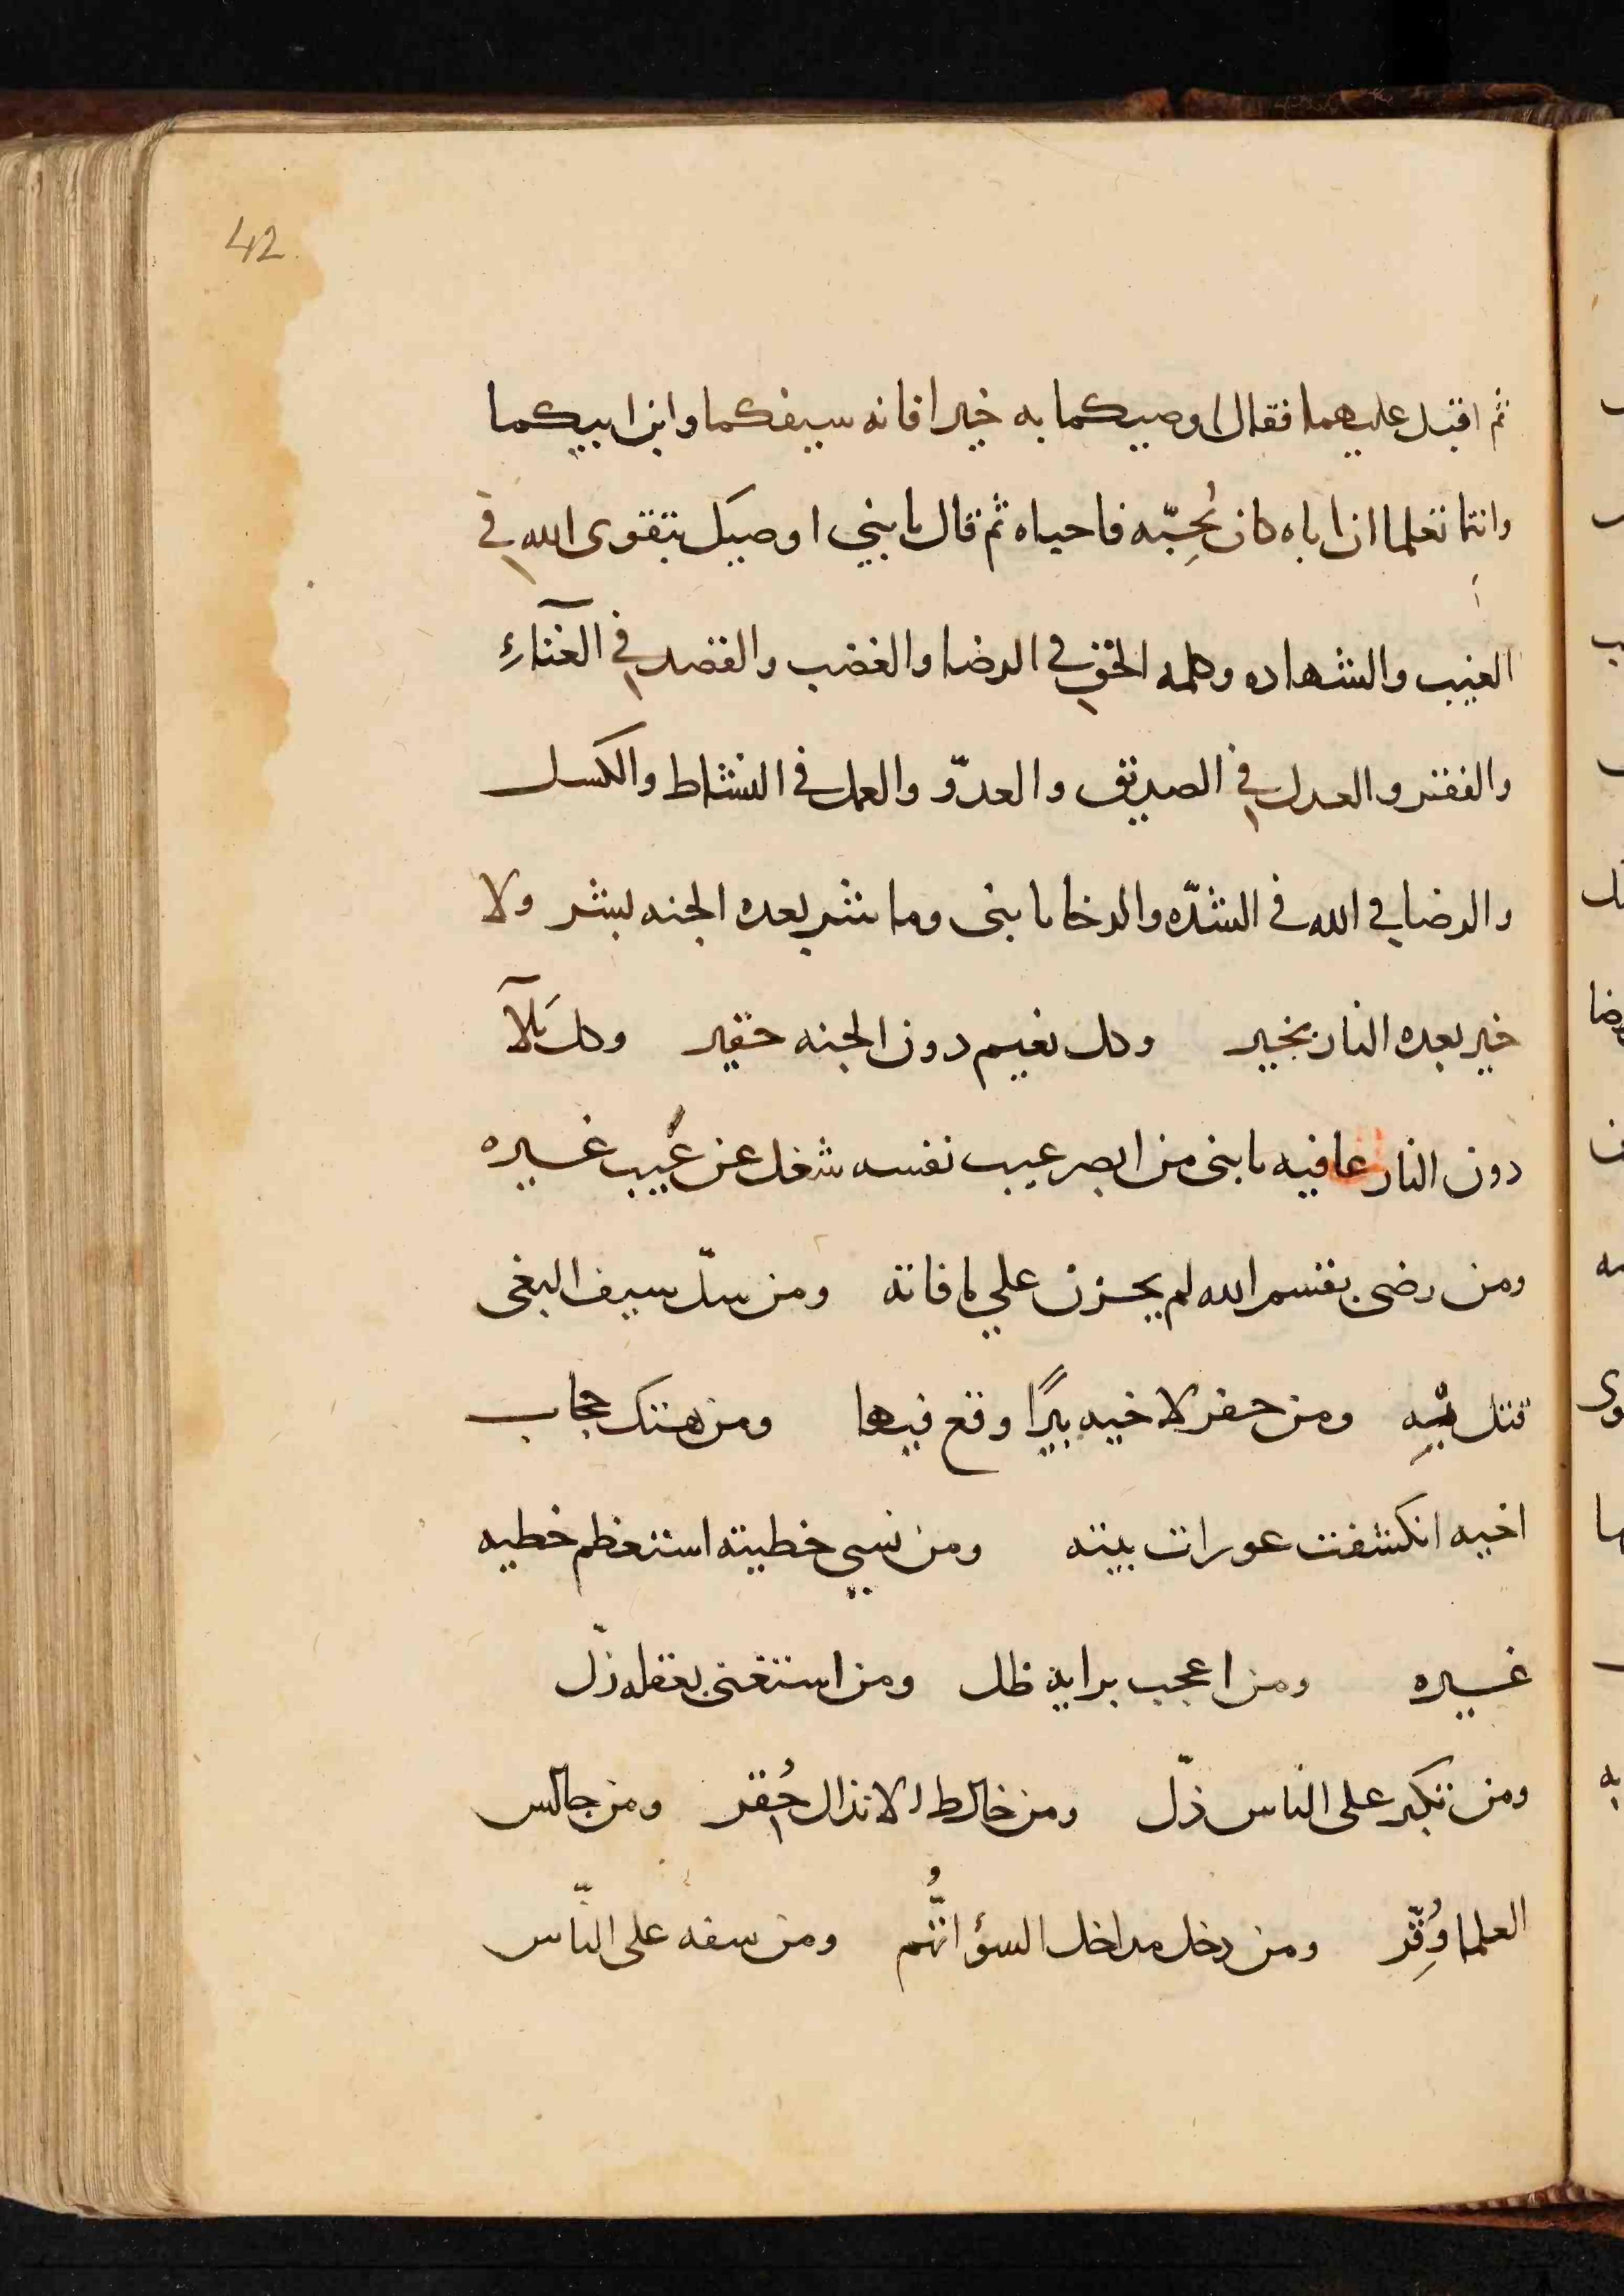 42
ثم اقبل عليهما فقال اوصيكما به خيرا فانه سيفكما وابن ابيكما
وانتما تعلما ان اباه كان يُحِبّه فاحياه ثم قال يا بني اوصيك بتقوى الله في
الغيب والشهاده وكلمه الحق في الرضا والغضب والقصد في الغنآءِ
والفقر والعدل في الصديق والعدوّ والعمل في النشاط والكسل
والرضا في الله في الشدّه والرخا يا بنى وما شر بعده الجنه بشر ولا
خير بعده النار بخير وكل نعيم دون الجنه حقير وكل بَلآ
دون النار عافيه يا بنى من ابصر عيب نفسه شغل عن عَيب غيره
ومن رضى بقسم الله لم يحزن علي ما فاته ومن سلّ سيف البغى
قتل بْهِ ومن حفر لاخيه بيرًا وقع فيها ومن هتك حجاب
اخيه انكشفت عورات بيته ومن نسي خطيته استعظم خطيه
غيره ومن اعجب برايه ظل ومن استغنى بعقله زلّ
ومن تكبر على الناس ذلّ ومن خالط الانذال حُقر ومن جالس
العلما وُقِّر ومن دخل مداخل السؤ اتُّهُم ومن سفه على النّاس